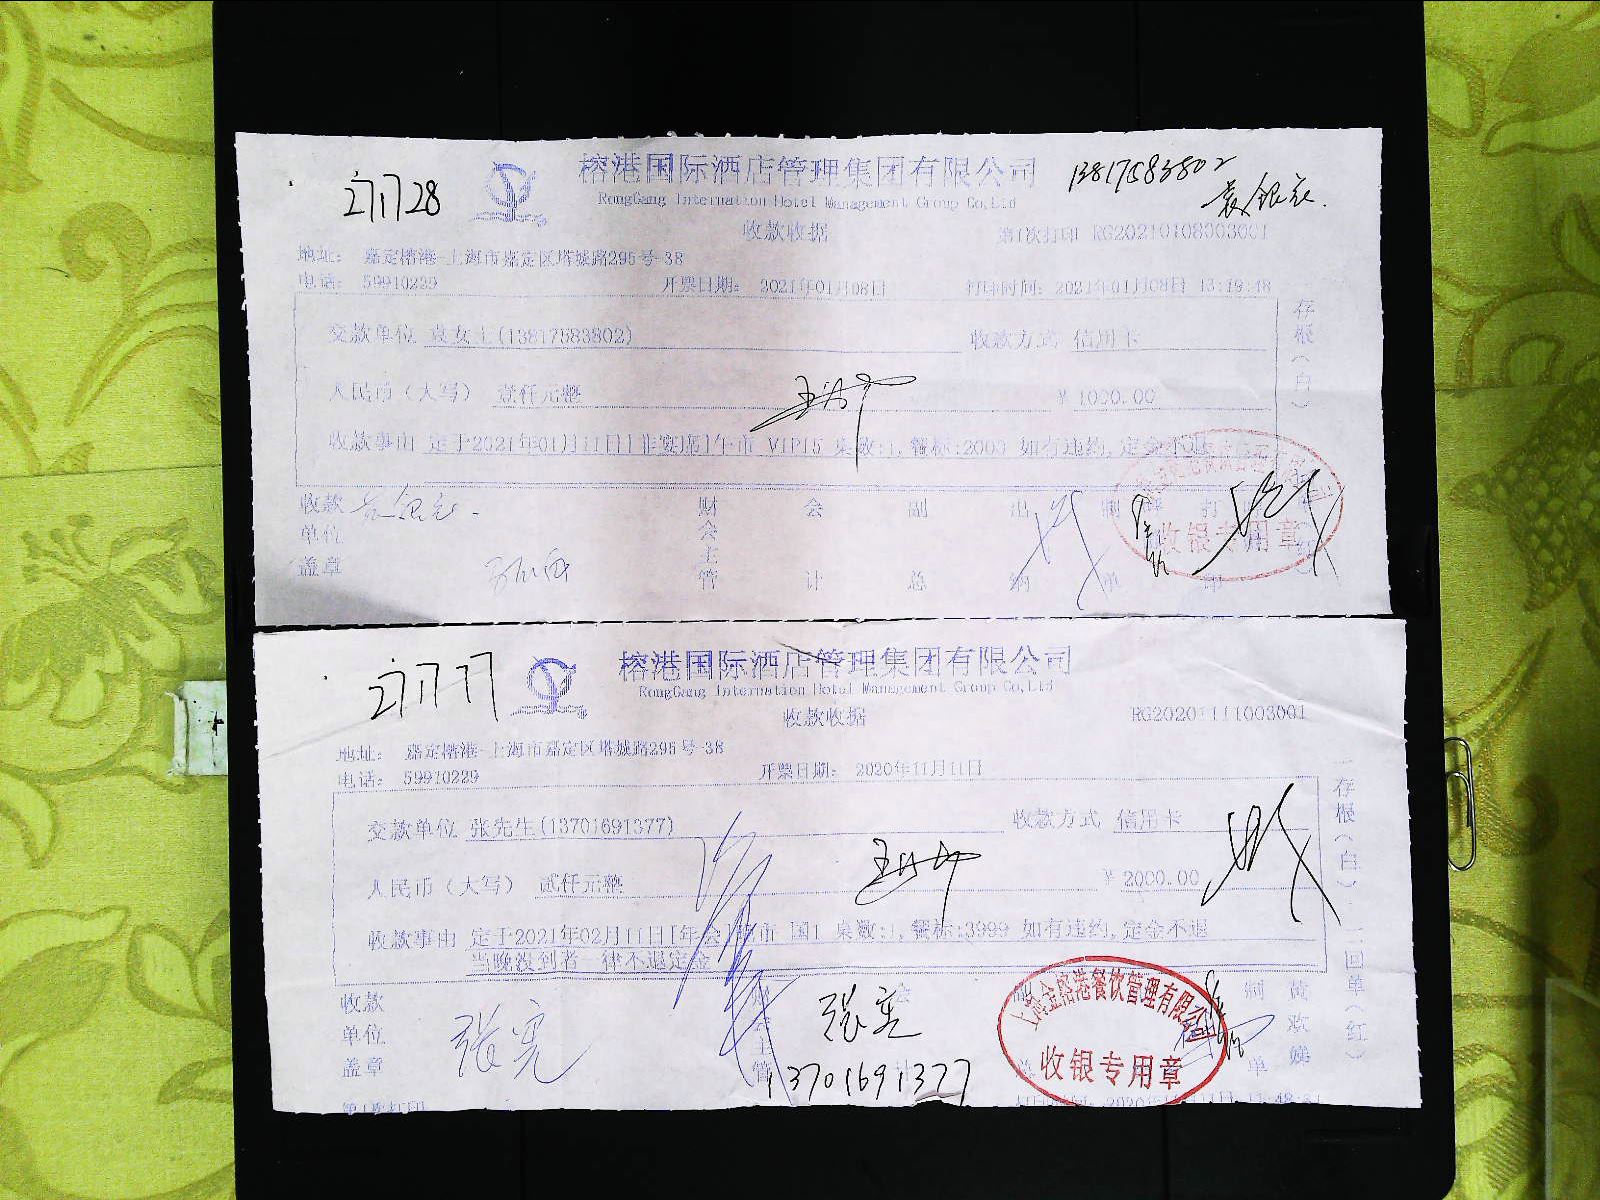 271728
榕港国际酒店管理集团有限公司
13817583802
RongGang Internation Hotel Management Group Co,Ltd
袁银宏
收款收据
第1次打印 RG20210108003001
地址: 嘉定榕港-上海市嘉定区塔城路295号-38
电话: 59910229 开票日期: 2021年01月08日 打印时间: 2021年01月08日 13:19:48
交款单位 袁女士(13817583802) 收款方式 信用卡
人民币(大写) 壹仟元整 ¥ 1000.00
收款事由 定于2021年01月11日[非宴席]午市 VIP15 桌数:1,餐标:2000 如有违约,定金不退
存根(白)
收款单位盖章 财会主管 会计 副总 出纳 制单 打印
收银专用章
271777
榕港国际酒店管理集团有限公司
RongGang Internation Hotel Management Group Co,Ltd
收款收据
RG20201111003001
地址: 嘉定榕港-上海市嘉定区塔城路295号-38
电话: 59910229 开票日期: 2020年11月11日
交款单位 张先生(13701691377) 收款方式 信用卡
人民币(大写) 贰仟元整 ¥ 2000.00
收款事由 定于2021年02月11日[年会] 市 国1 桌数:1,餐标:3999 如有违约,定金不退
当晚没到者一律不退定金
存根(白) 二回单(红)
收款单位盖章 张亮 张亮 制单 黄欢娣
13701691377
上海金榕港餐饮管理有限公司
收银专用章
第1次打印